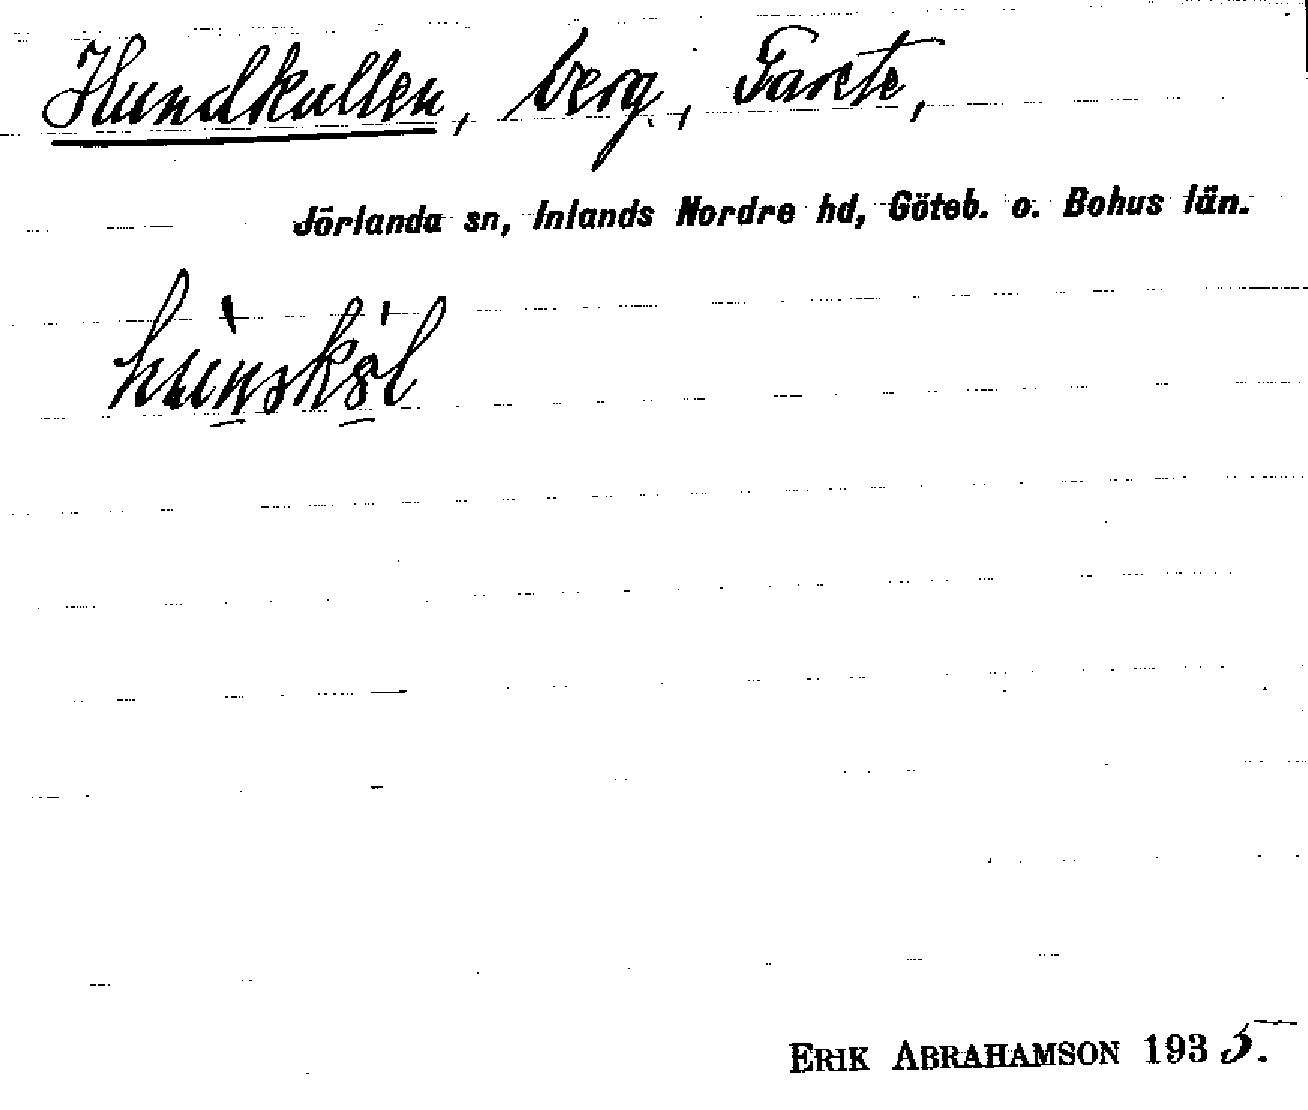 Hundkullen, berg, Tarete,
Jörlanda sn, Inlands Nordre hd, Göteb. o. Bohus län.
ERIK ABRAHAMSON 1935.